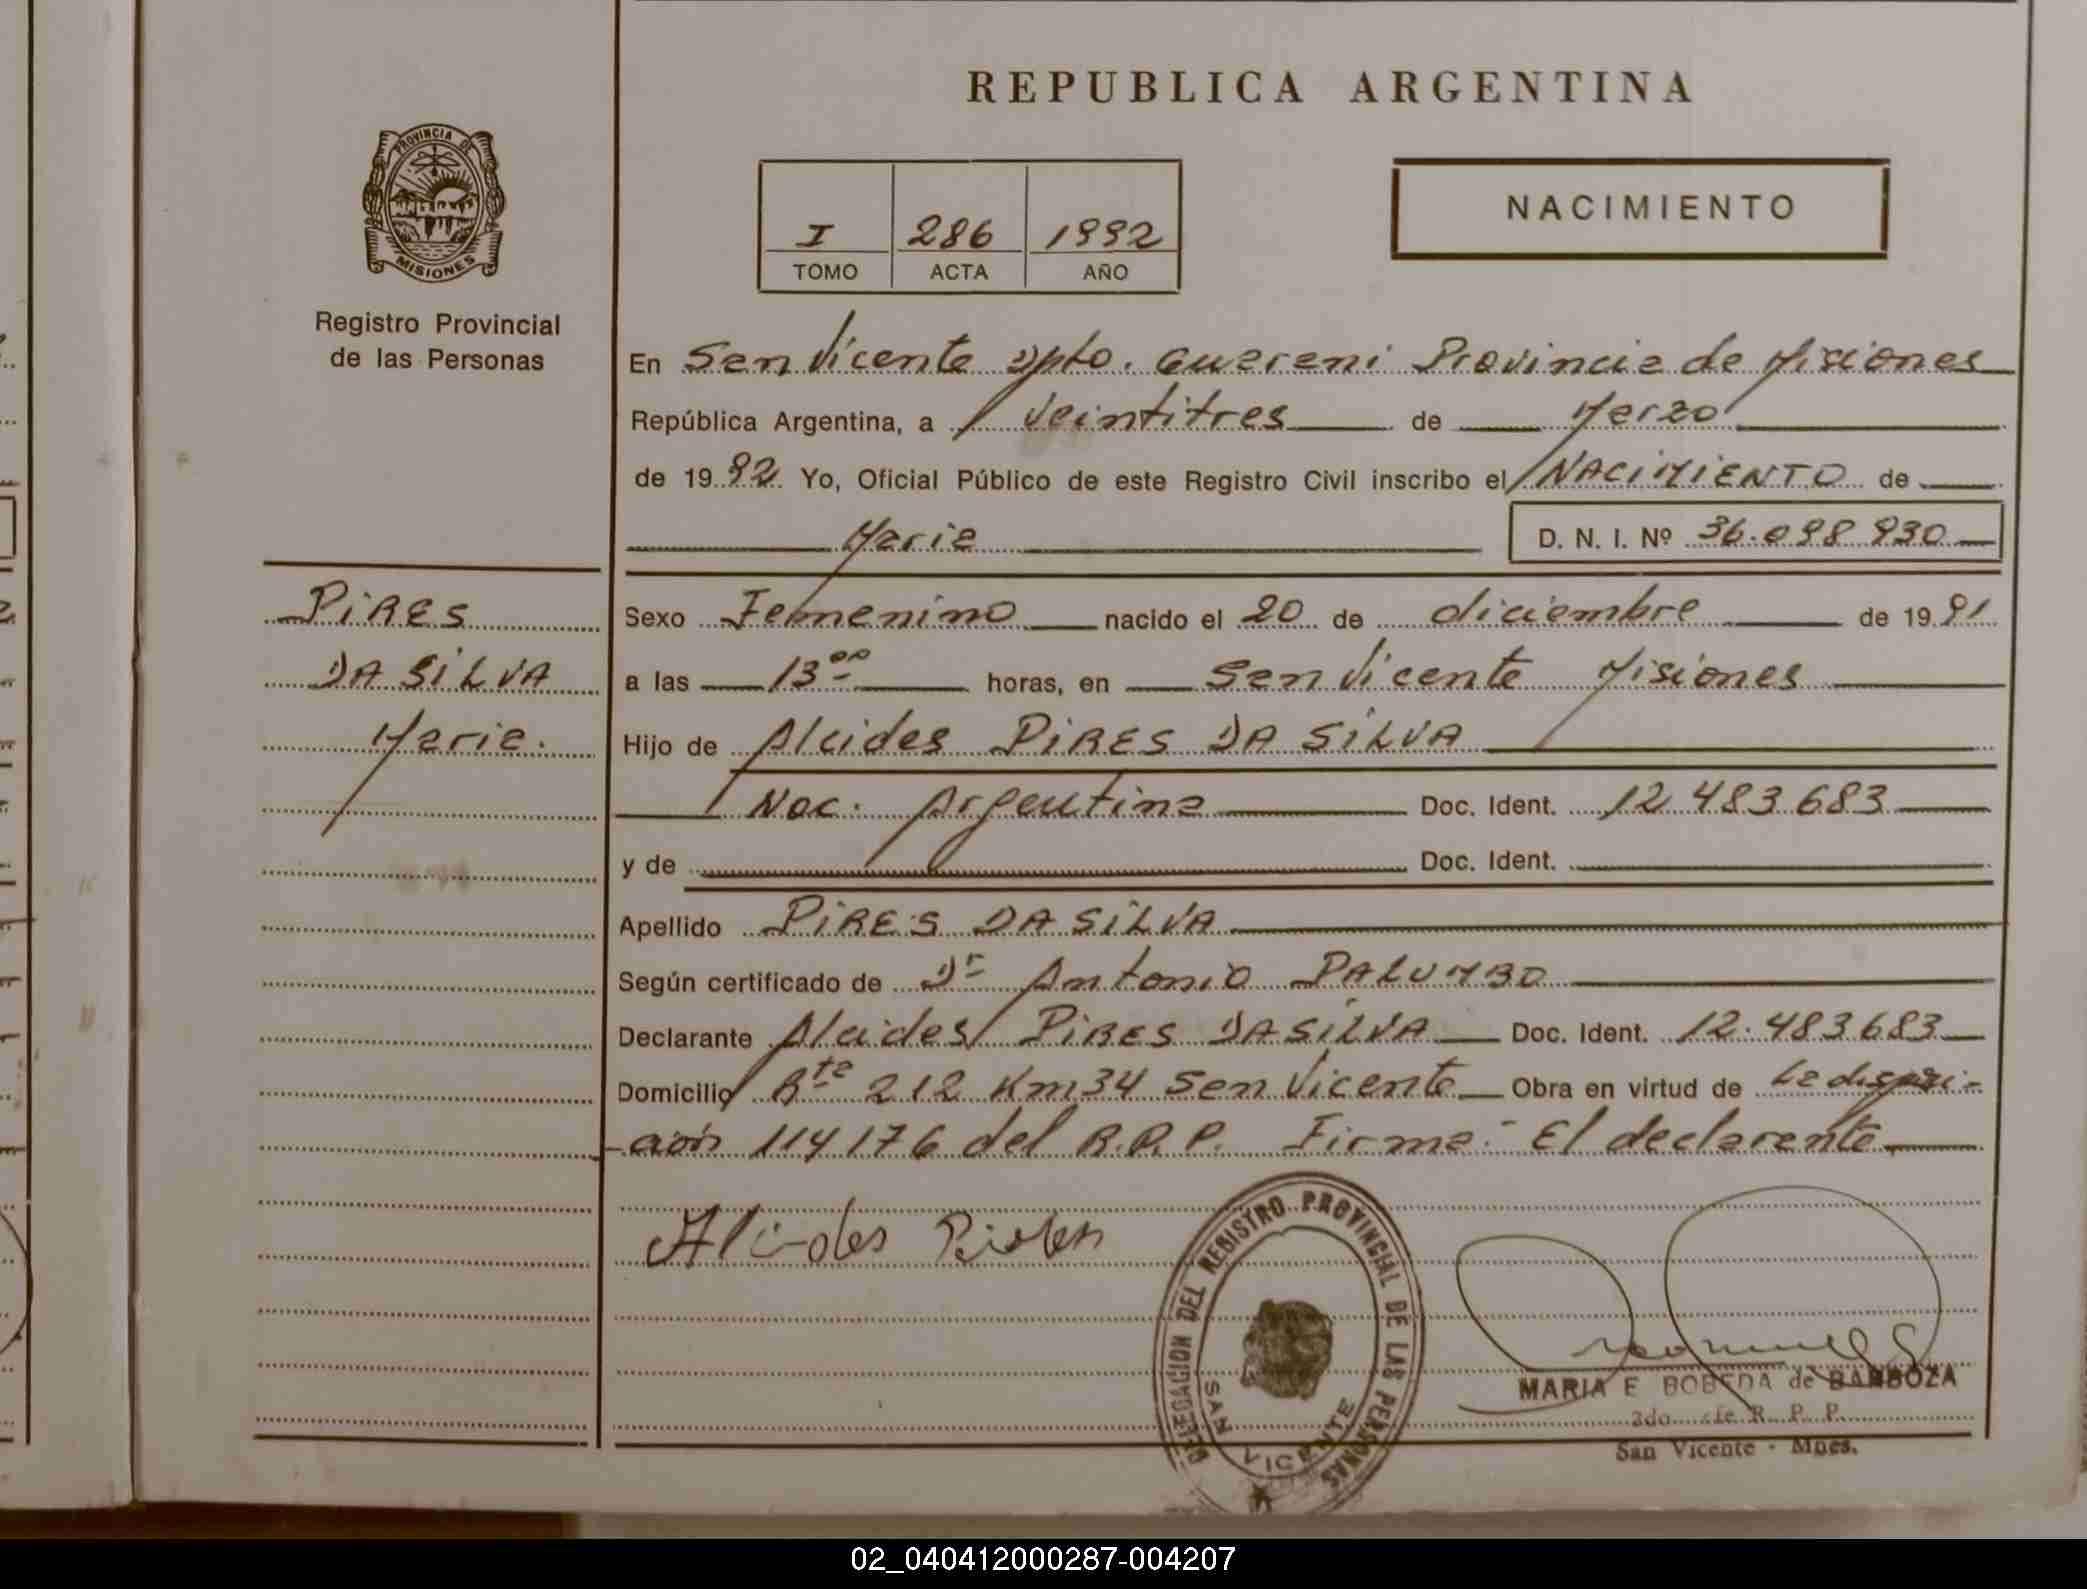 REPUBLICA ARGENTINA
PROVINCIA DE MISIONES
Registro Provincial
de las Personas
I 286 1992
TOMO ACTA AÑO
NACIMIENTO
En San Vicente Dpto. Guarani Provincia de Misiones
República Argentina, a veintitres de Marzo
de 1992 Yo, Oficial Público de este Registro Civil inscribo el NACIMIENTO de
Maria D. N. I. Nº 36.098 930
PIRES
DA SILVA
Maria.
Sexo Femenino nacido el 20 de diciembre de 1991
a las 13 00 horas, en San Vicente Misiones
Hijo de Alcides PIRES DA SILVA
Nac. Argentina Doc. Ident. 12 483 683
y de Doc. Ident.
Apellido PIRES DA SILVA
Según certificado de Dr Antonio PALUMBO
Declarante Alcides PIRES DA SILVA Doc. Ident. 12.483.683
Domicilio Rta 212 Km 34 San Vicente Obra en virtud de La disposi-
ción 114176 del R.P.P. Firma: El declarante
Alcides
DELEGACION DEL REGISTRO PROVINCIAL DE LAS PERSONAS
SAN VICENTE
MARIA E BOBEDA de BARBOZA
2do R. P. P.
San Vicente - Mnes.
02_040412000287-004207